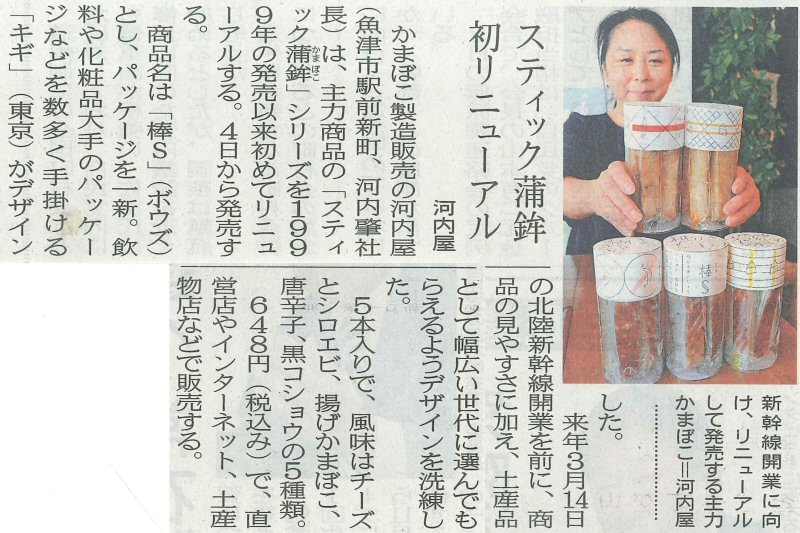 スティック蒲鉾
初リニューアル
河内屋
かまぼこ製造販売の河内屋
(魚津市駅前新町、河内肇社
長)は、主力商品の「スティ
ック蒲鉾(かまぼこ)」シリーズを199
9年の発売以来初めてリニュ
ーアルする。4日から発売す
る。
商品名は「棒S」(ボウズ)
とし、パッケージを一新。飲
料や化粧品大手のパッケー
ジなどを数多く手掛ける
「キギ」(東京)がデザイン
した。
来年3月14日
の北陸新幹線開業を前に、商
品の見やすさに加え、土産品
として幅広い世代に選んでも
らえるようデザインを洗練し
た。
5本入りで、風味はチーズ
とシロエビ、揚げかまぼこ、
唐辛子、黒コショウの5種類。
648円(税込み)で、直
営店やインターネット、土産
物店などで販売する。
新幹線開業に向
け、リニューアル
して発売する主力
かまぼこ=河内屋
棒S